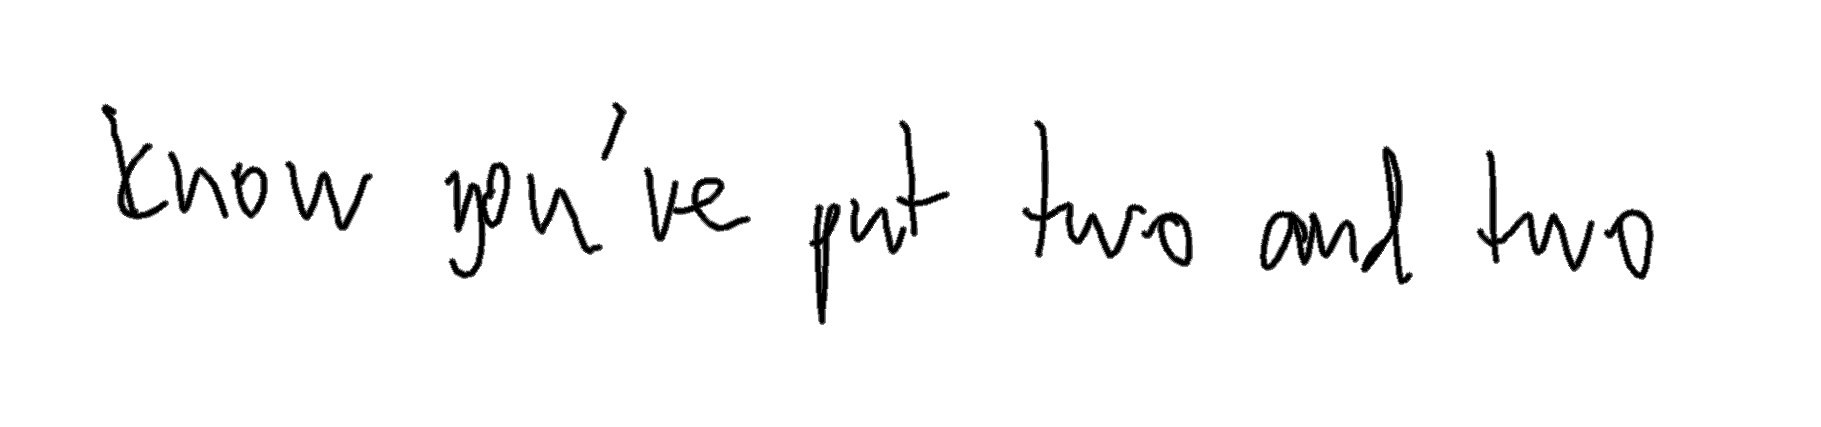 know you've put two and two